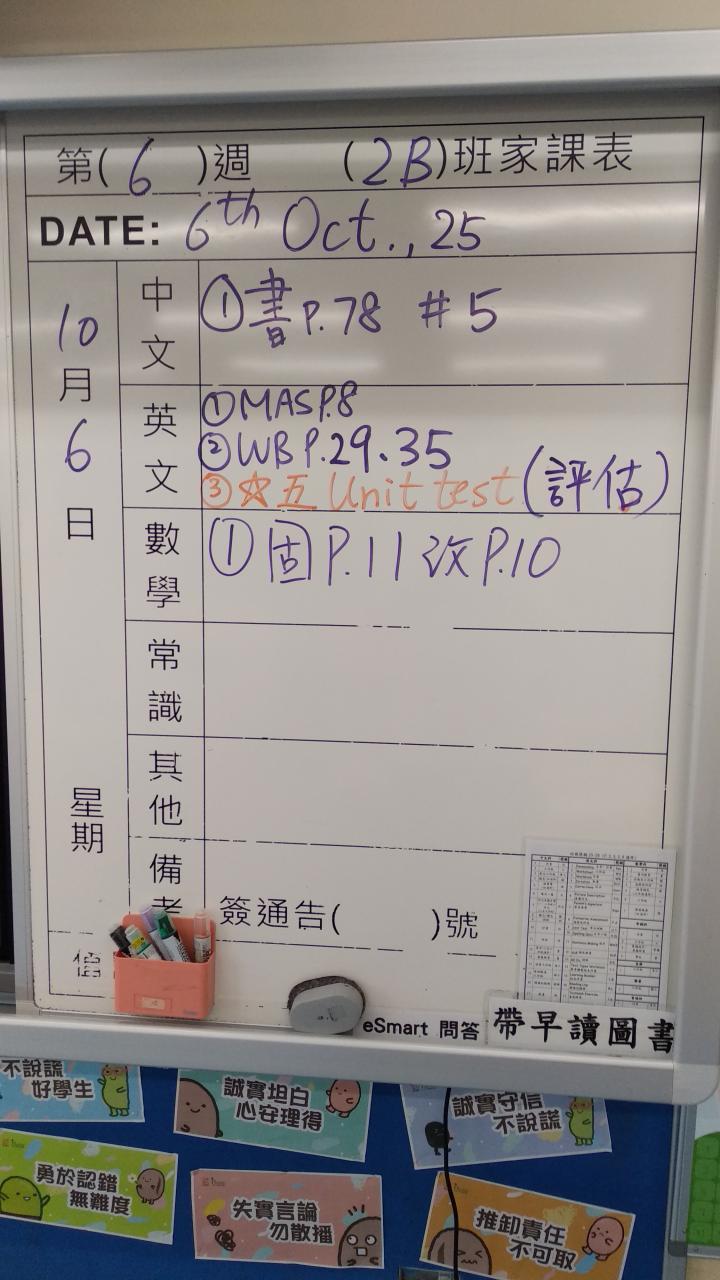 第(6)週 (2B)班家課表
DATE: 6th Oct., 25
10月6日
星期
中文
①書P.78 #5
英文
①MASP.8
②WBP.29、35
③☆五 Unit test(評估)
數學
①固P.11 改P.10
常識
其他
備考
簽通告( )號
值
eSmart 問答
帶早讀圖書
不說謊
好學生
誠實坦白
心安理得
誠實守信
不說謊
勇於認錯
無難度
失實言論
勿散播
推卸責任
不可取